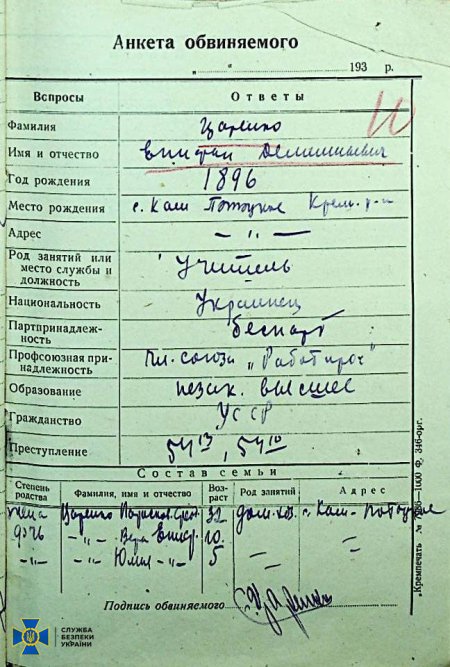 Анкета обвиняемого
„ “ 193 р.
Вопросы Ответы
Фамилия Царенко
Имя и отчество
Год рождения 1896
Место рождения с. Кам Потоцкое Крем. р-н
Адрес — „ —
Род занятий или место службы и должность Учитель
Национальность Украинец
Партпринадлежность беспарт
Профсоюзная принадлежность Чл. союза „Работпрос“
Образование незак. высшее
Гражданство УССР
Преступление 54 13, 54 10
Состав семьи
Степень родства Фамилия, имя и отчество Возраст Род занятий Адрес
жена Царенко 32 дом. хоз. с. Кам-Потоцкое
дочь — „ — Вера 10. — —
— „ — Юлия — „ — 5 — —
Подпись обвиняемого
„Кремпечать“
СЛУЖБА
БЕЗПЕКИ
УКРАЇНИ